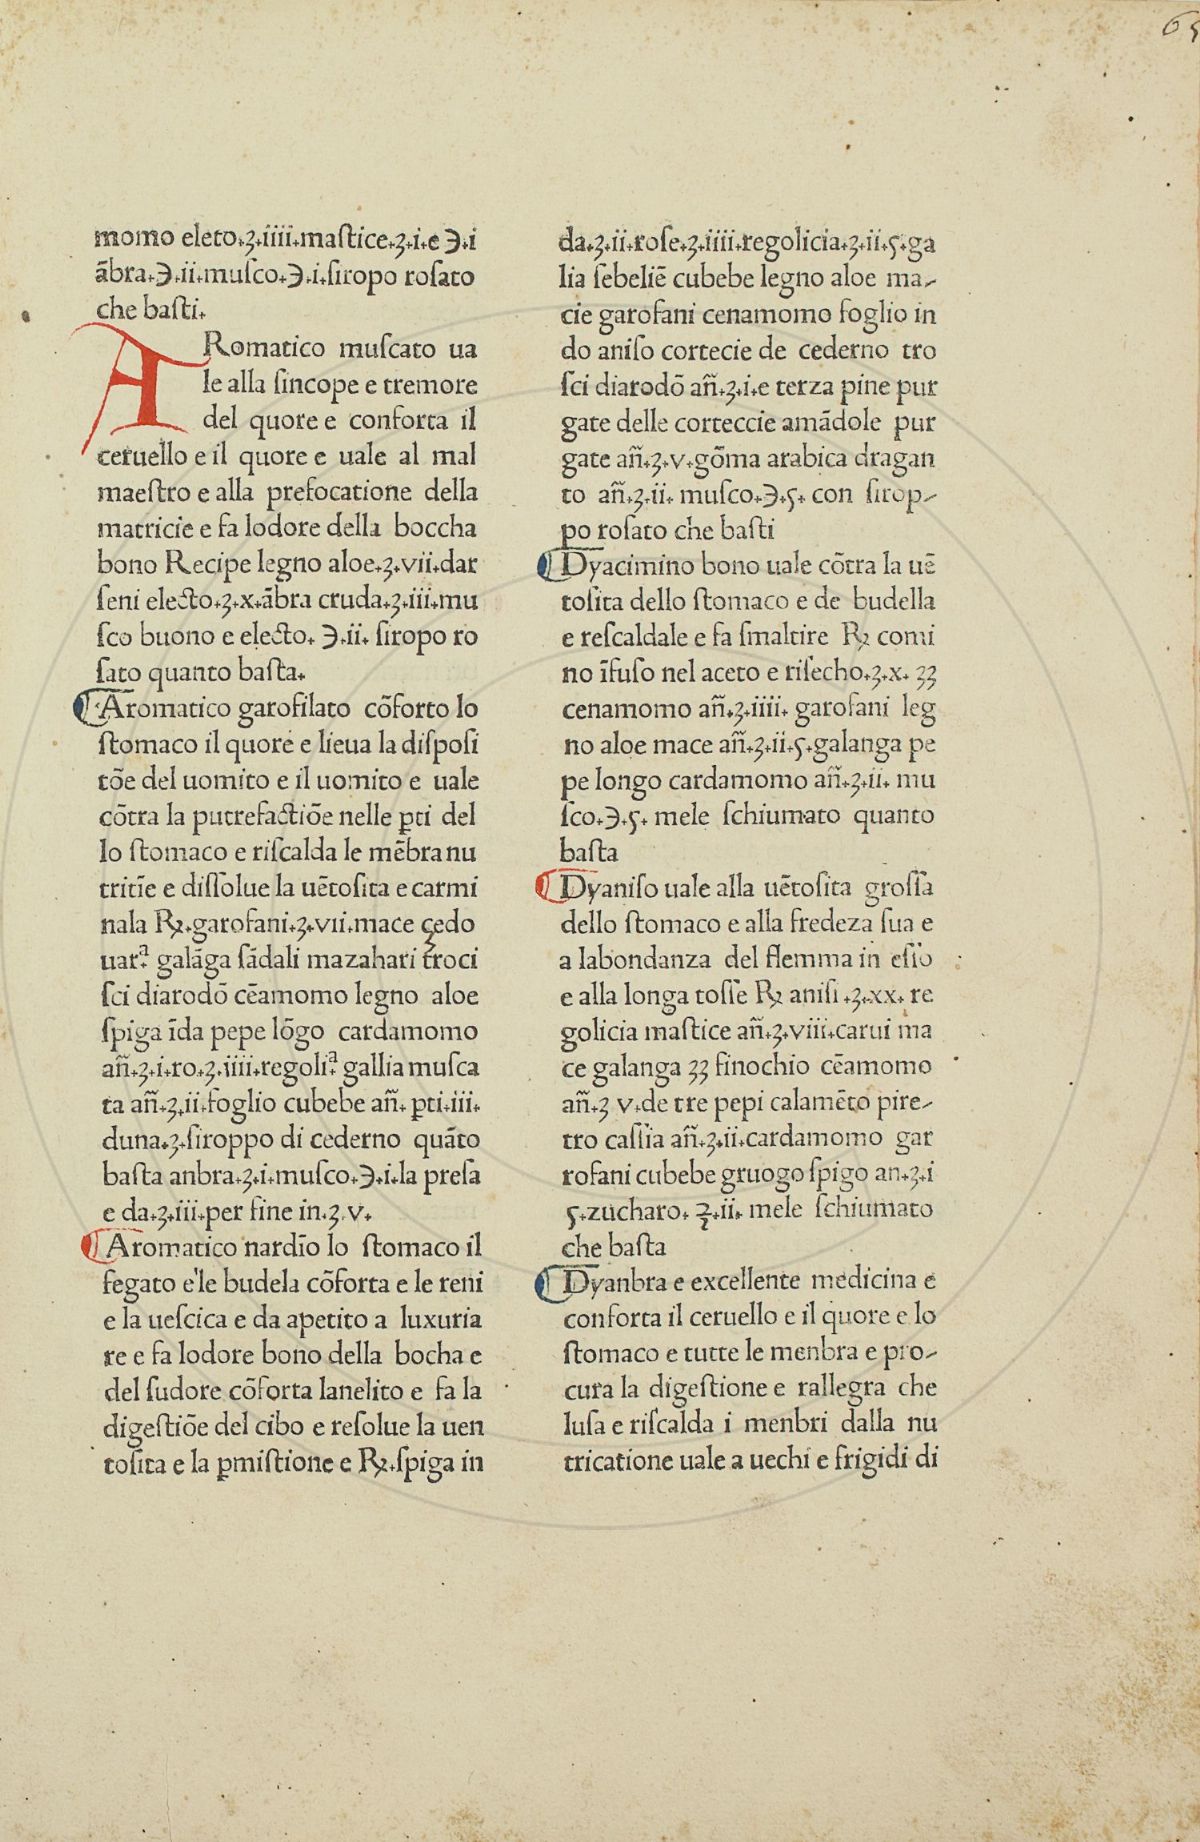 65
momo eleto.ʒ.iiii.maſtice.ʒ.i.e ℈.i
ābra.℈.ii.muſco.℈.i.ſiropo roſato
che baſti.
ARomatico muſcato ua
le alla ſincope e tremore
del quore e conforta il
ceruello e il quore e uale al mal
maeſtro e alla prefocatione della
matricie e fa lodore della boccha
bono Recipe legno aloe.ʒ.vii.dar
ſeni electo.ʒ.x.ābra cruda.ʒ.iii.mu
ſco buono e electo. ℈.ii. ſiropo ro
ſato quanto baſta.
Aromatico garofilato cōforto lo
ſtomaco il quore e lieua la diſpoſi
tōe del uomito e il uomito e uale
cōtra la putrefactiōe nelle ꝑti del
lo ſtomaco e riſcalda le mēbra nu
tritīe e diſſolue la uētoſita e carmi
nala ℞.garofani.ʒ.vii.mace çedo
uarᵃ. galāga ſādali mazahari troci
ſci diarodō cēamomo legno aloe
ſpiga īda pepe lōgo cardamomo
an̄.ʒ.i.ro.ʒ.iiii.regoliᵃ. gallia muſca
ta an̄.ʒ.ii.foglio cubebe an̄. ꝑti.iii.
duna.ʒ.ſiroppo di cederno quāto
baſta anbra.ʒ.i.muſco.℈.i.la preſa
e da.ʒ.iii.per fine in.ʒ.v.
Aromatico nardīo lo ſtomaco il
fegato e'le budela cōforta e le reni
e la ueſcica e da apetito a luxuria
re e fa lodore bono della bocha e
del ſudore cōforta lanelito e fa la
digeſtiōe del cibo e reſolue la uen
toſita e la ꝑmiſtione e ℞.ſpiga in
da.ʒ.ii.roſe.ʒ.iiii.regolicia.ʒ.ii.ϛ.ga
lia ſebeliē cubebe legno aloe ma-
cie garofani cenamomo foglio in
do aniſo cortecie de cederno tro
ſci diarodō an̄.ʒ.i.e terza pine pur
gate delle corteccie amādole pur
gate an̄.ʒ.v.gōma arabica dragan
to an̄.ʒ.ii. muſco.℈.ϛ. con ſirop-
po roſato che baſti
Dyacimino bono uale cōtra la uē
toſita dello ſtomaco e de budella
e reſcaldale e fa ſmaltire ℞ comi
no īfuſo nel aceto e riſecho.ʒ.x. ʒʒ
cenamomo an̄.ʒ.iiii. garofani leg
no aloe mace an̄.ʒ.ii.ϛ.galanga pe
pe longo cardamomo an̄.ʒ.ii. mu
ſco.℈.ϛ. mele ſchiumato quanto
baſta
Dyaniſo uale alla uētoſita groſſa
dello ſtomaco e alla fredeza ſua e
a labondanza del flemma in eſſo
e alla longa toſſe ℞ aniſi .ʒ.xx. re
golicia maſtice an̄.ʒ.viii.carui ma
ce galanga ʒʒ finochio cēamomo
an̄.ʒ v.de tre pepi calamēto pire-
tro caſſia an̄.ʒ.ii.cardamomo gar
rofani cubebe gruogo ſpigo an.ʒ.i
ϛ.zucharo. ℥.ii. mele ſchiumato
che baſta
Dyanbra e excellente medicina e
conforta il ceruello e il quore e lo
ſtomaco e tutte le menbra e pro-
cura la digeſtione e rallegra che
luſa e riſcalda i menbri dalla nu
tricatione uale a uechi e frigidi di